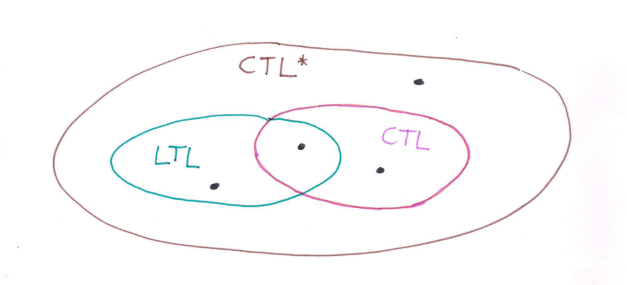 CTL*
LTL
CTL